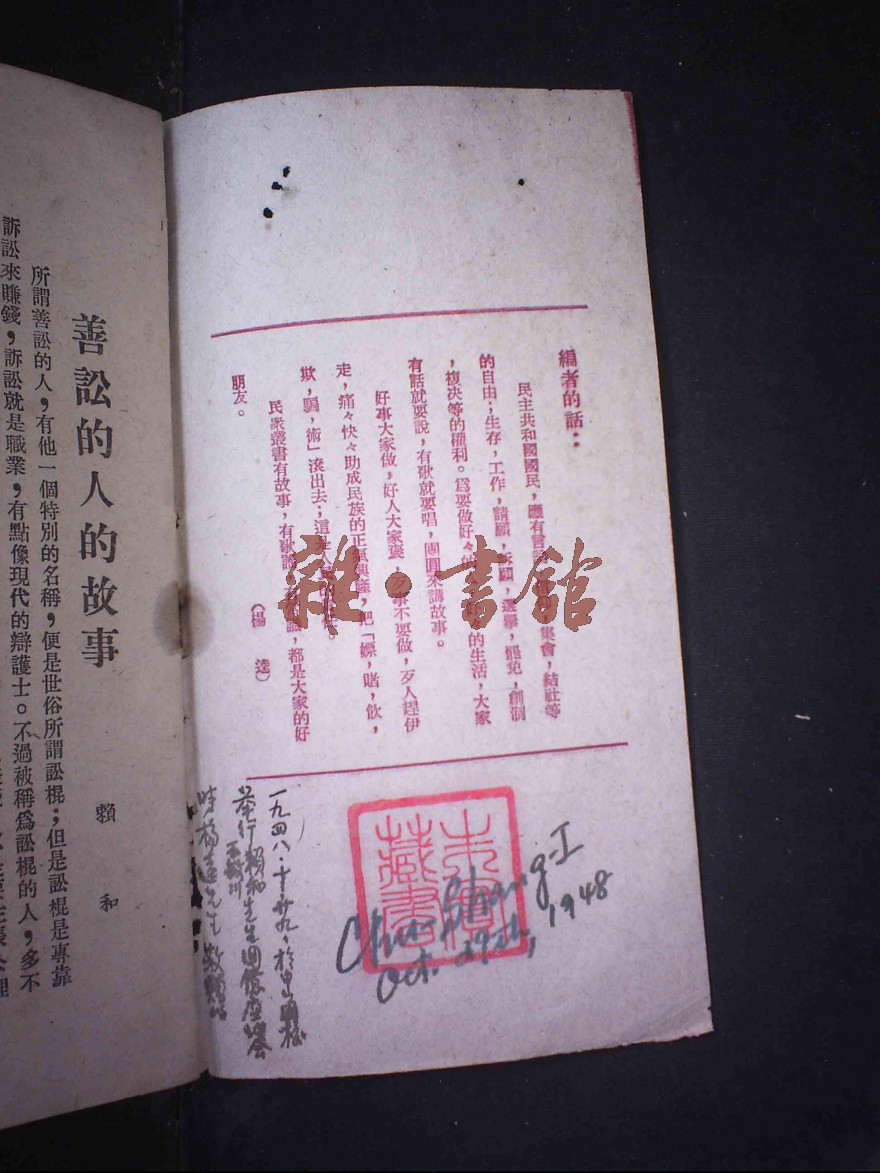 編者的話：
民主共和國國民，應有言 集會，結社等
的自由；生存，工作，請願，訴願，選舉，罷免，創制
，複决等的權利。爲要做好々的 的生活，大家
有話就要說，有歌就要唱，團圓來講故事。
好事大家做，好人大家褒，歹事不要做，歹人趕伊
走，痛々快々助成民族的正氣興隆，把「嫖，賭，飲，
欺，騙，術」滾出去；這是人
民衆叢書有故事，有歌謠， 識，都是大家的好
朋友。
（楊 逵）
雜·書館
藏書
Chu Shang-I
Oct. 29th, 1948
一九四八·十·廿九，於中山國校
舉行賴和先生回憶座談會
時楊逵先生敬贈
善訟的人的故事
賴 和
所謂善訟的人，有他一個特別的名稱，便是世俗所謂訟棍；但是訟棍是專靠
訴訟來賺錢，訴訟就是職業，有點像現代的辯護士。不過被稱爲訟棍的人，多不